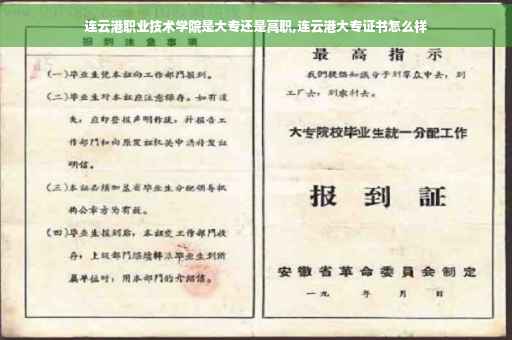 连云港职业技术学院是大专还是高职,连云港大专证书怎么样
报到注意事项
(一)毕业生凭本証向工作部門报到。
(二)毕业生对本証应注意保存。如有遗
失,应即登报声明作废,并报告工
作部門和向原发証机关申請补发証
明信。
(三)本証必須加盖省毕业生分配領导机
构公章方为有效。
(四)毕业生报到后,本証交工作部門收
存,上级部門
毕业生到所
属单位时,用本部門的介紹信。
最高指示
我們提倡知識分子到羣众中去,到
工厂去,到农村去。
大专院校毕业生統一分配工作
报到証
安徽省革命委員会制定
一九 年 月 日